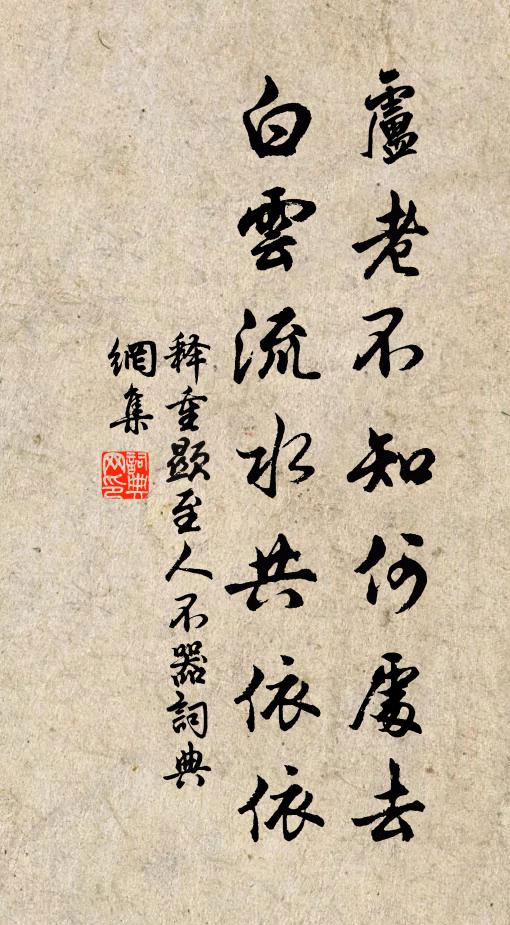 盧老不知何處去
白雲流水共依依
释重顯至人不器詞典
網集
詞典
网印